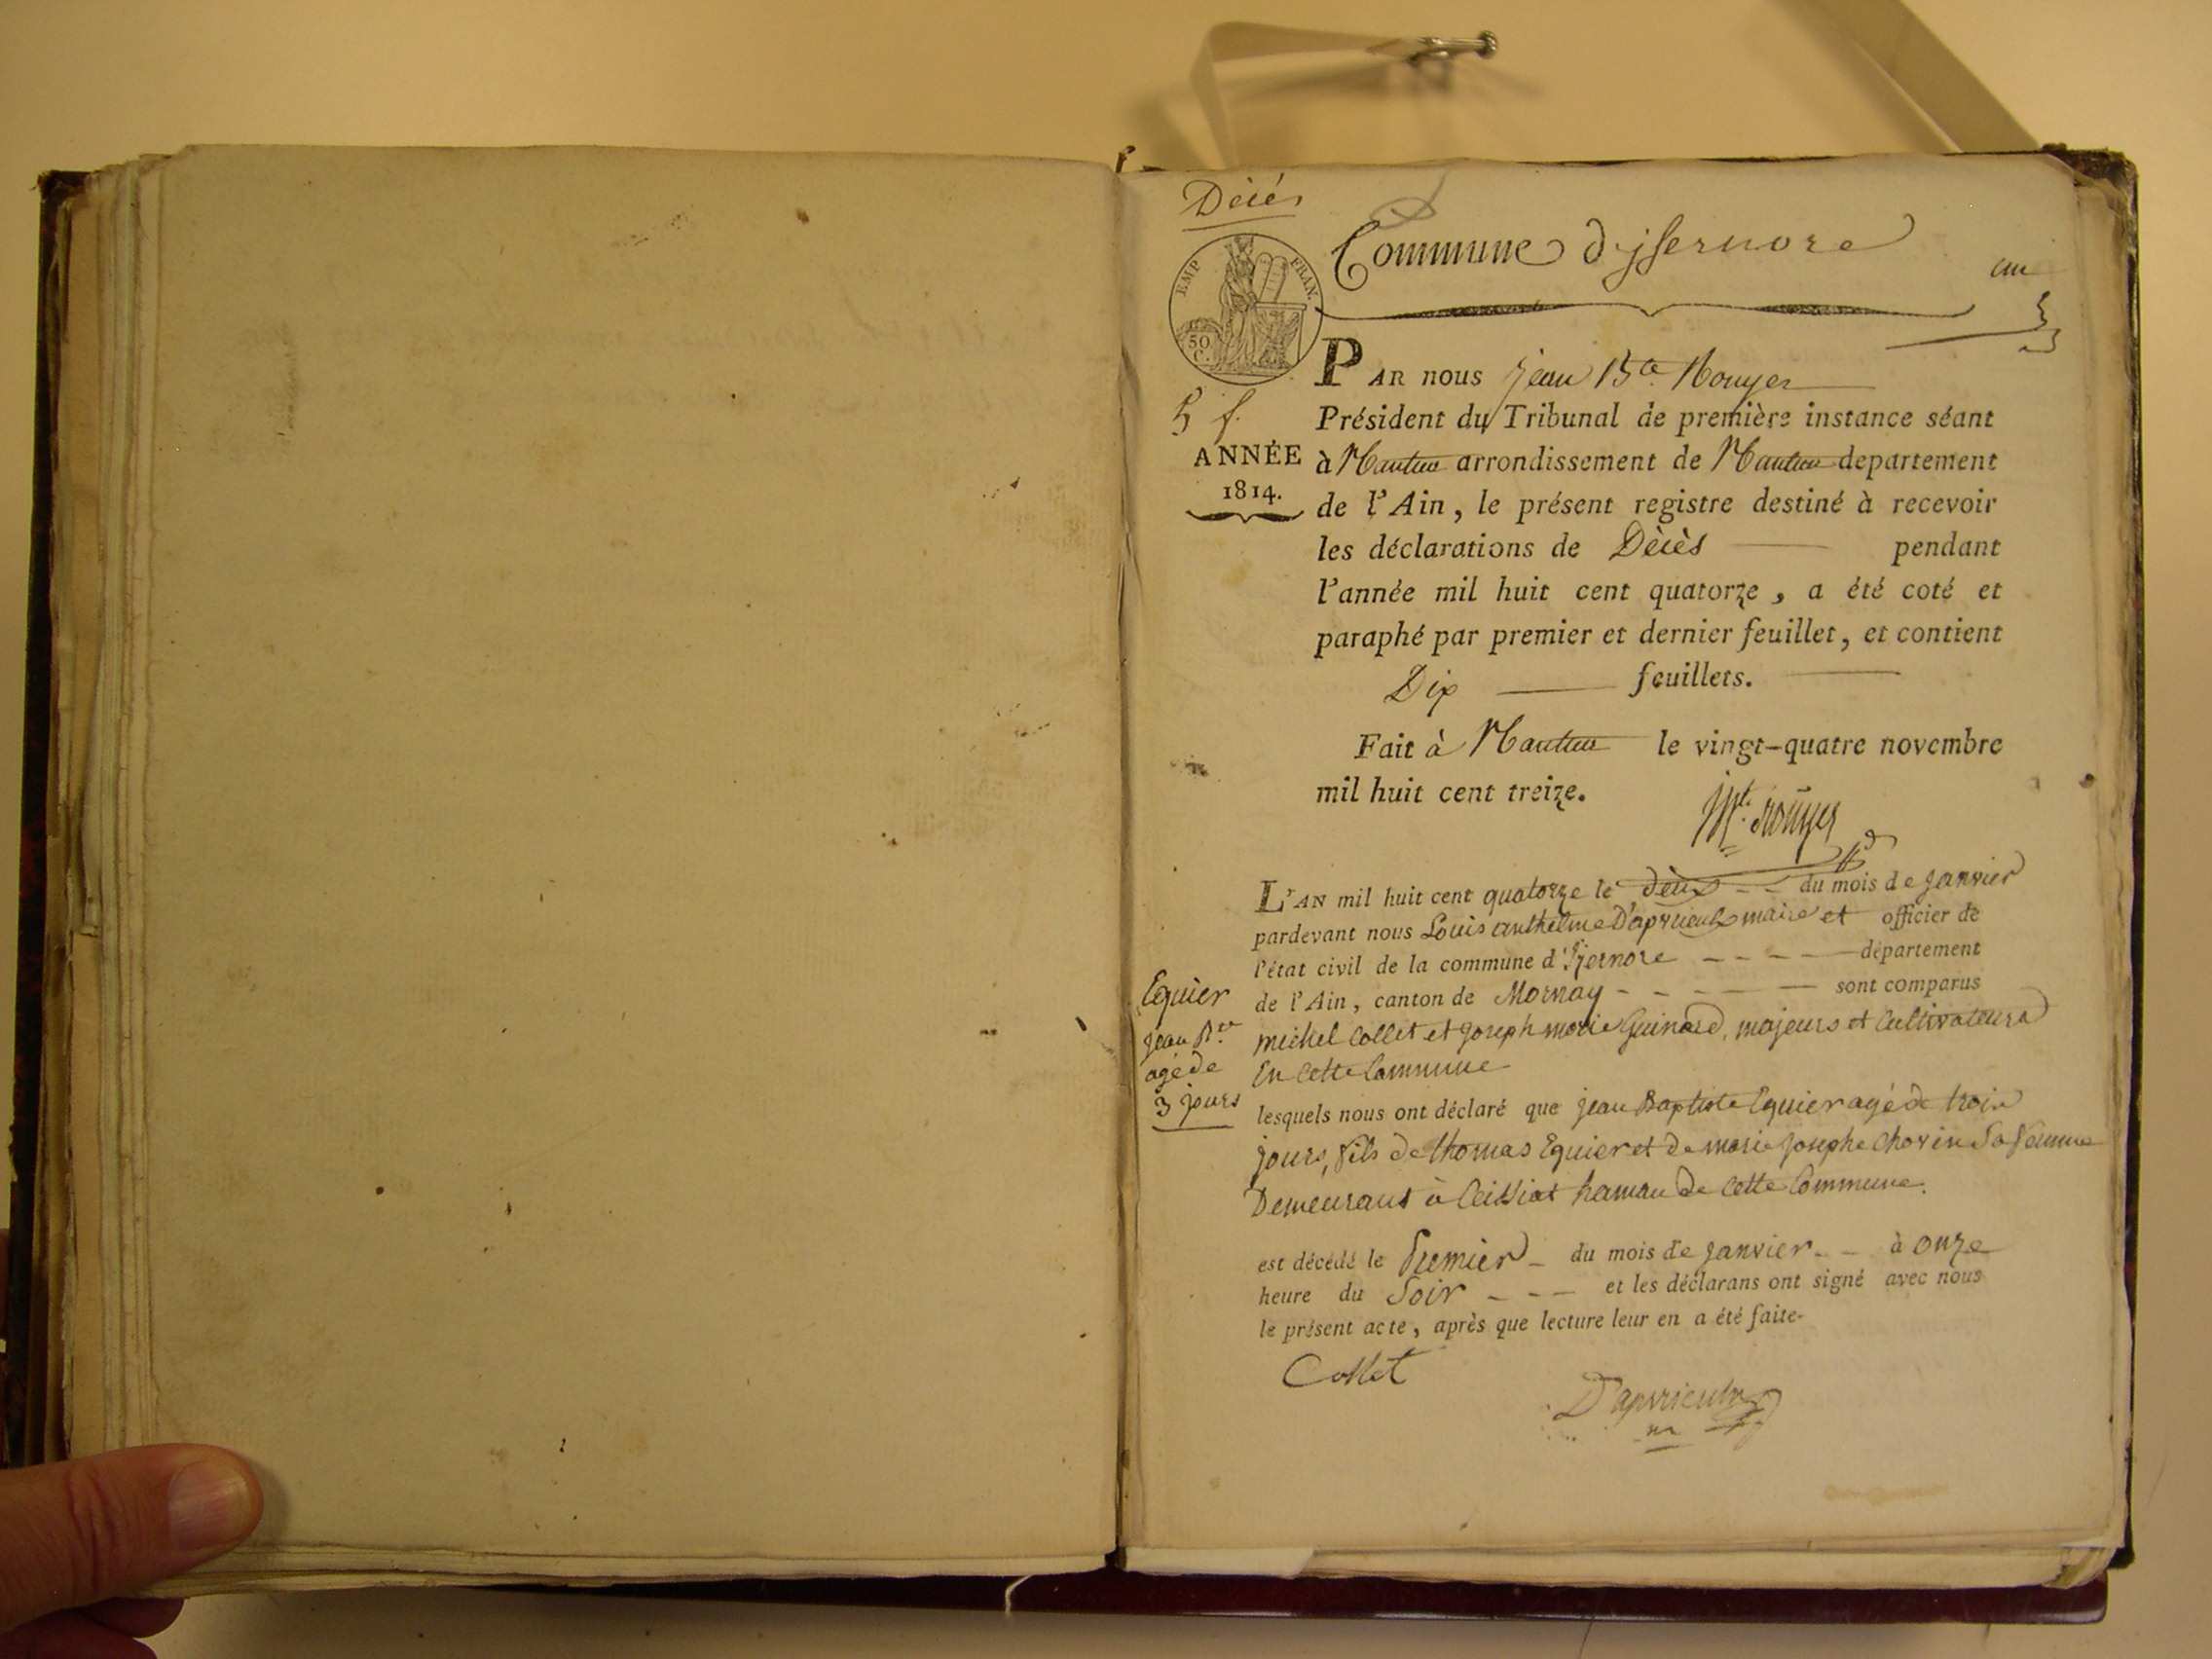 Décés
Commune d'jsernore
un
EMP. FRAN.
50
C.
5 f.
ANNÉE
1814.
PAR nous jean Bte. Rouyer
Président du Tribunal de première instance séant
à Nantua arrondissement de Nantua departement
de l'Ain, le présent registre destiné à recevoir
les déclarations de Décès pendant
l'année mil huit cent quatorze, a été coté et
paraphé par premier et dernier feuillet, et contient
Dix feuillets.
Fait à Nantua le vingt-quatre novembre
mil huit cent treize.
Rouyer
L'AN mil huit cent quatorze le deux - - du mois de janvier
pardevant nous Louis anthelme D'apvrieulx maire et officier de
l'état civil de la commune d'Izernore - - - - département
de l'Ain, canton de Mornay - - - - sont comparus
michel Collet et joseph marie Guinard, majeurs et Cultivateurs
En Cette Commune
Eguier
jean Bte
agé de
3 jours
lesquels nous ont déclaré que jean Baptiste Eguier agé de trois
jours, fils de thomas Eguier et de marie josephe Chorin Sa femme
Demeurant à Ceissiat hamau de cette Commune.
est décédé le Premier - du mois de janvier - - à onze
heure du Soir - - - et les déclarans ont signé avec nous
le présent acte, après que lecture leur en a été faite.
Collet
D'apvrieulx
m